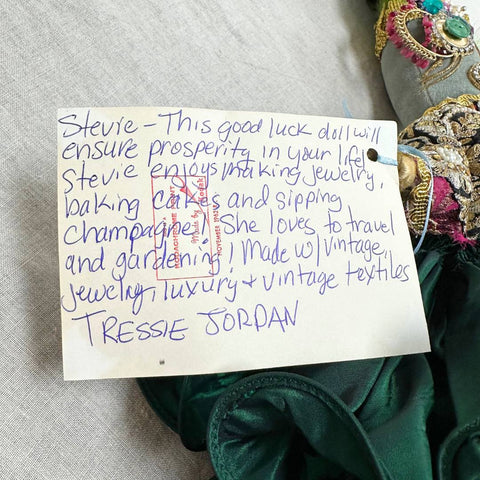 Stevie - This good luck doll will
ensure prosperity in your life!
Stevie enjoys making jewelry,
baking cakes and sipping
champagne! She loves to travel
and gardening! Made w/ vintage
jewelry, luxury + vintage textiles
TRESSIE JORDAN